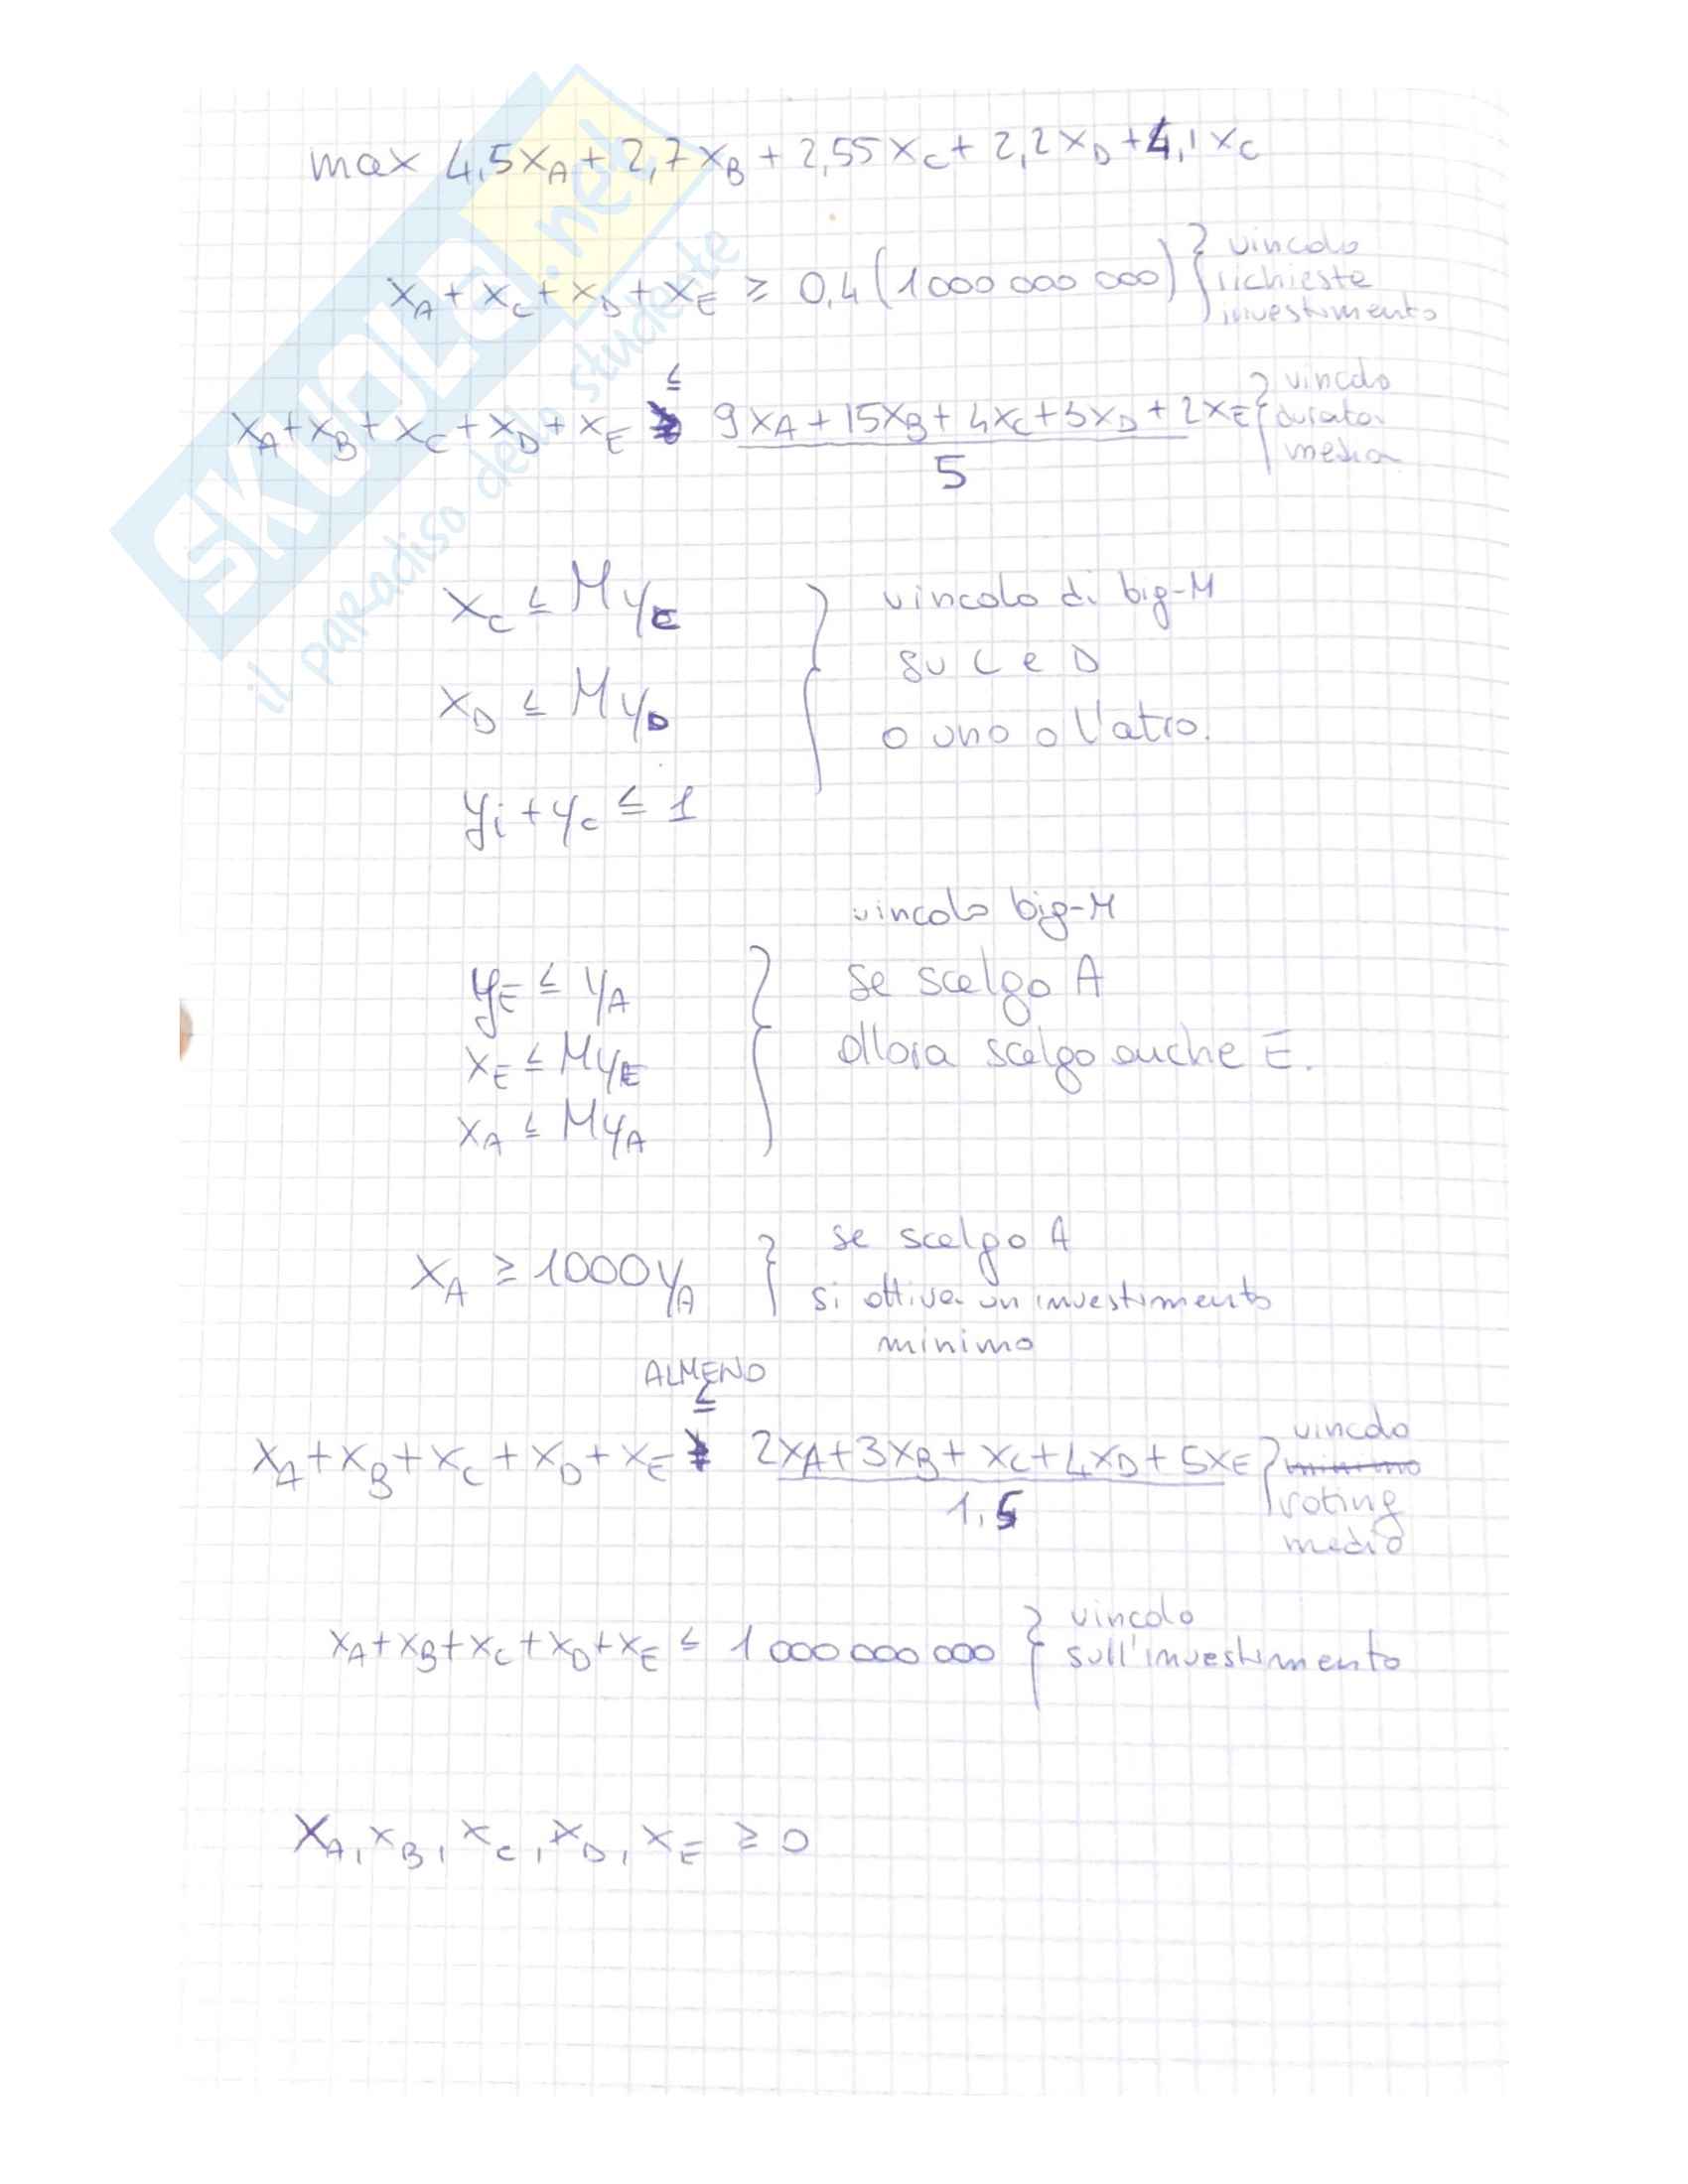 max 4,5xA + 2,7xB + 2,55xC + 2,2xD + 4,1xC
xA + xC + xD + xE ≥ 0,4(1000 000 000) } vincolo
richieste
investimento
≤
xA + xB + xC + xD + xE 9xA + 15xB + 4xC + 3xD + 2xE } vincolo
5
durata
media
xC ≤ MyC
xD ≤ MyD
yi + yC ≤ 1
} vincolo di big-M
su C e D
o uno o l'atro.
vincolo big-M
yE ≤ yA
xE ≤ MyE
xA ≤ MyA
} se scelgo A
allora scelgo anche E.
xA ≥ 1000yA } se scelgo A
si attiva un investimento
minimo
ALMENO
≤
xA + xB + xC + xD + xE 2xA + 3xB + xC + 4xD + 5xE } vincolo
1,5
minimo
rating
medio
xA + xB + xC + xD + xE ≤ 1 000 000 000 } vincolo
sull'investimento
xA, xB, xC, xD, xE ≥ 0
SKUOLA.net
il paradiso dello studente